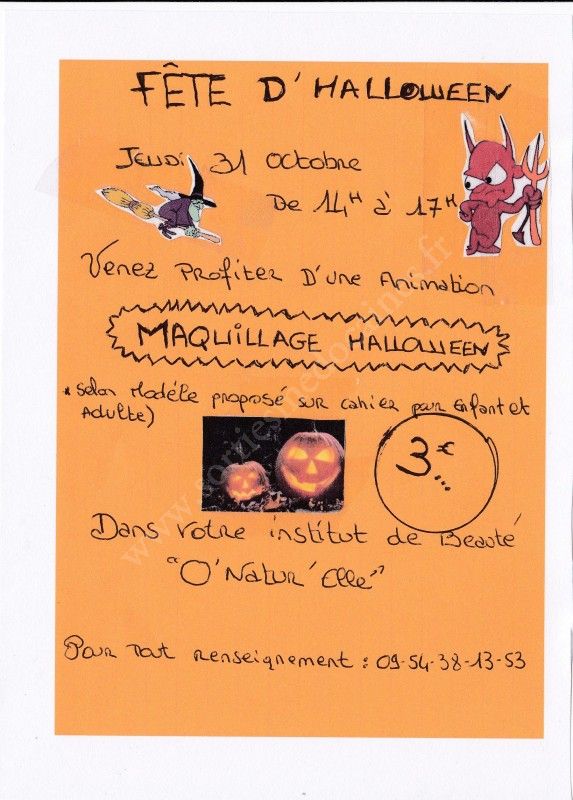 FÊTE D'HALLOWEEN
JEUDI 31 octobre
De 14H à 17H
Venez Profiter D'une Animation
MAQUILLAGE HALLOWEEN
* selon Modèle proposé sur cahier pour Enfant et
Adulte)
3€
...
Dans votre institut de Beauté
"O'Natur'Elle"
Pour Tout renseignement : 09-54-38-13-53
www.sortiesmedocaines.fr